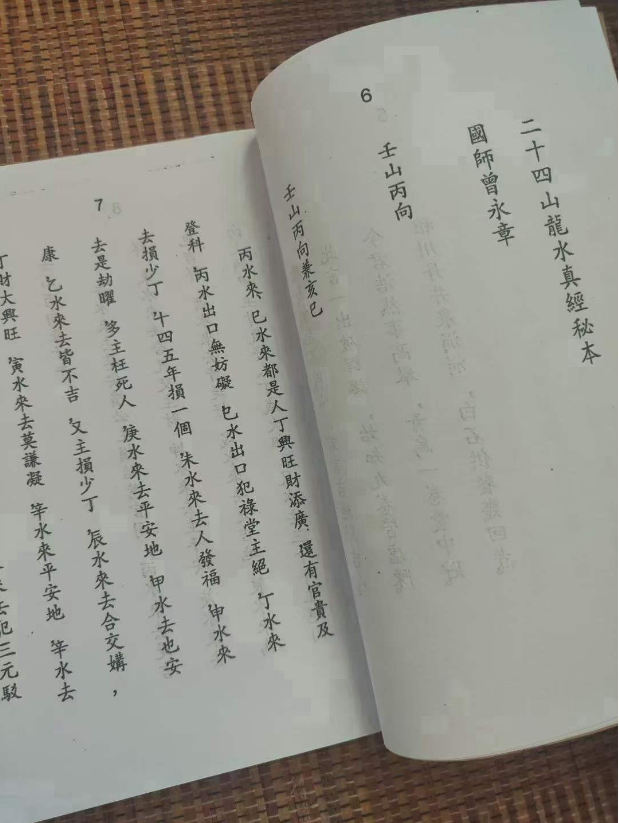 6
二十四山龍水真經秘本
國師曾永章
壬山丙向
7
壬山丙向兼亥巳
丙水來、巳水來都是人丁興旺財添廣、還有官貴及
登科、丙水出口無妨礙、巳水出口犯祿堂主絕、丁水來
去損少丁、十四五年損一個、未水來去人發福、申水來
去是劫曜、多主枉死人、庚水來去平安地、甲水去也安
康、乙水來去皆不吉、又主損少丁、辰水來去合交媾，
丁財大興旺、寅水來去英謙凝、辛水來平安地、辛水去
去犯三元駁